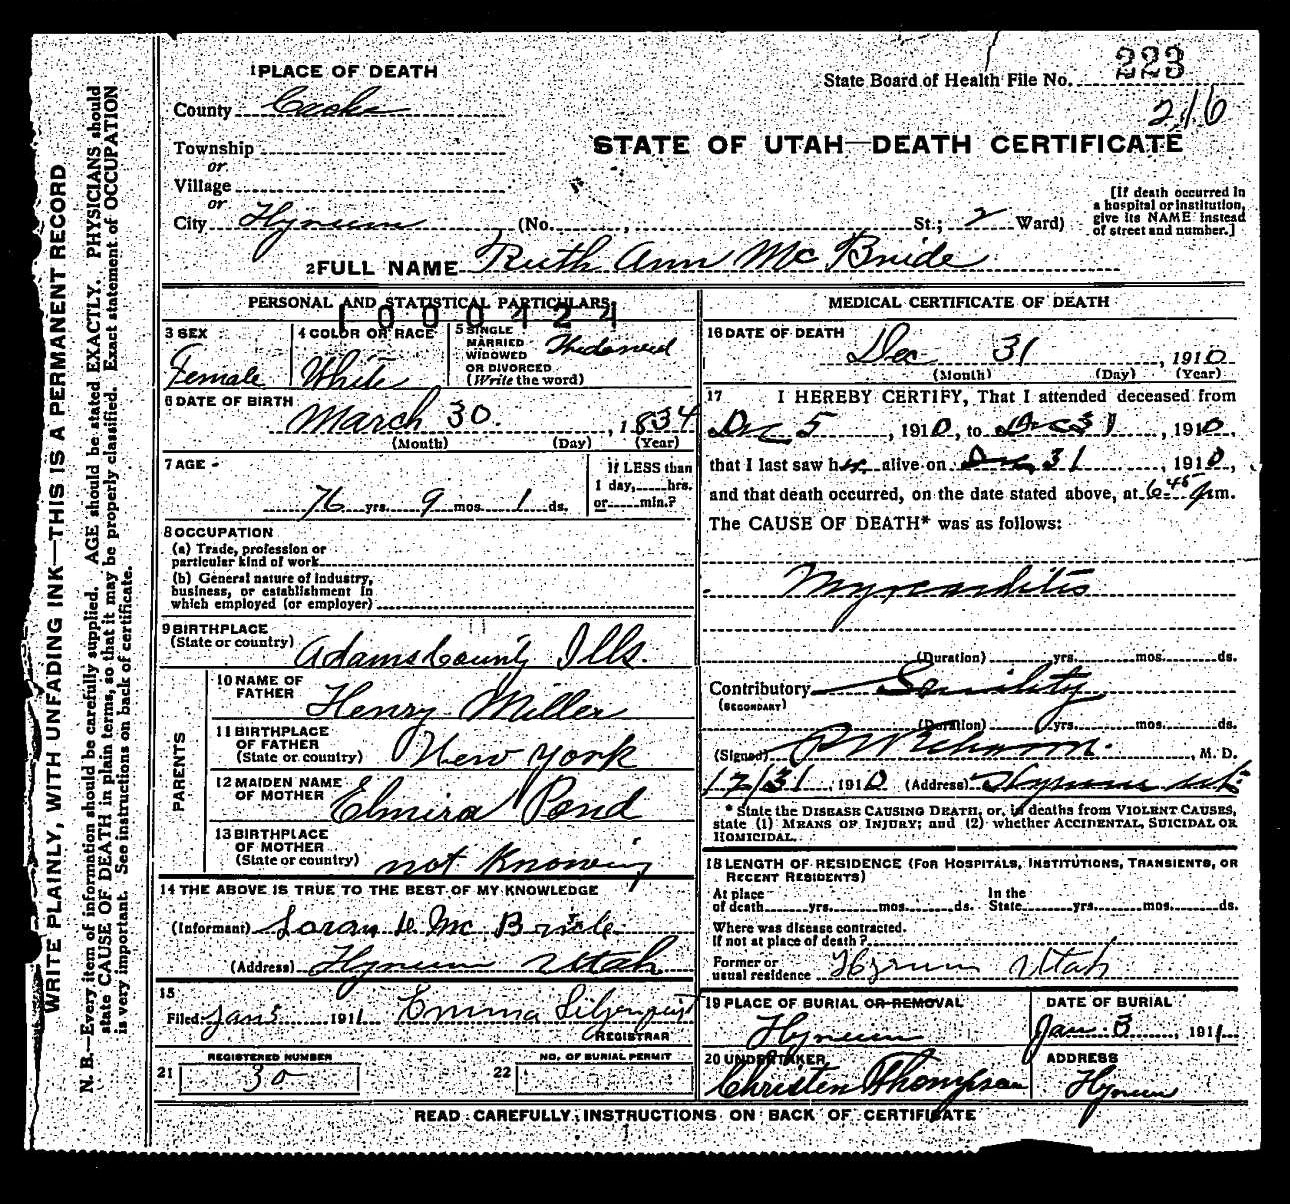 1 PLACE OF DEATH
State Board of Health File No. 223
County Cache
216
Township
STATE OF UTAH—DEATH CERTIFICATE
or
Village
or
City Hyrum (No. , St.; 2 Ward)
[If death occurred in
a hospital or institution,
give its NAME instead
of street and number.]
2 FULL NAME Ruth Ann Mc Bride
PERSONAL AND STATISTICAL PARTICULARS.
1000424
3 SEX
Female
4 COLOR OR RACE
White
5 SINGLE
MARRIED
WIDOWED
OR DIVORCED
(Write the word)
Widowed
6 DATE OF BIRTH
March 30. , 1834
(Month) (Day) (Year)
7 AGE
76 yrs. 9 mos. 1 ds.
If LESS than
1 day, hrs.
or min.?
8 OCCUPATION
(a) Trade, profession or
particular kind of work
(b) General nature of industry,
business, or establishment in
which employed (or employer)
9 BIRTHPLACE
(State or country) Adams County Ills.
PARENTS
10 NAME OF
FATHER Henry Miller
11 BIRTHPLACE
OF FATHER
(State or country) New York
12 MAIDEN NAME
OF MOTHER Elmira Pond
13 BIRTHPLACE
OF MOTHER
(State or country) not Knowing
14 THE ABOVE IS TRUE TO THE BEST OF MY KNOWLEDGE
(Informant) Mc Bride
(Address) Hyrum Utah
15
Filed Jan 5 1911 Emma Liljenquist
REGISTRAR
REGISTERED NUMBER
21 30
NO. OF BURIAL PERMIT
22
MEDICAL CERTIFICATE OF DEATH
16 DATE OF DEATH
Dec 31 , 1910
(Month) (Day) (Year)
17 I HEREBY CERTIFY, That I attended deceased from
Dec 5 , 1910, to Dec 31 , 1910,
that I last saw her alive on Dec 31 , 1910,
and that death occurred, on the date stated above, at 6 45 p.m.
The CAUSE OF DEATH* was as follows:
Myocarditis
(Duration) yrs. mos. ds.
Contributory Senility
(SECONDARY)
(Duration) yrs. mos. ds.
(Signed) , M. D.
12/31 1910 (Address) Hyrum Utah
* State the DISEASE CAUSING DEATH, or, in deaths from VIOLENT CAUSES,
state (1) MEANS OF INJURY; and (2) whether ACCIDENTAL, SUICIDAL OR
HOMICIDAL.
18 LENGTH OF RESIDENCE (FOR HOSPITALS, INSTITUTIONS, TRANSIENTS, OR
RECENT RESIDENTS)
At place
of death yrs. mos. ds.
In the
State yrs. mos. ds.
Where was disease contracted.
If not at place of death?
Former or
usual residence Hyrum Utah
19 PLACE OF BURIAL OR REMOVAL
Hyrum
DATE OF BURIAL
Jan. 3 1911
20 UNDERTAKER
Christen Thompson
ADDRESS
Hyrum
READ CAREFULLY, INSTRUCTIONS ON BACK OF CERTIFICATE
WRITE PLAINLY, WITH UNFADING INK—THIS IS A PERMANENT RECORD
N. B.—Every item of information should be carefully supplied. AGE should be stated EXACTLY. PHYSICIANS should
state CAUSE OF DEATH in plain terms, so that it may be properly classified. Exact statement of OCCUPATION
is very important. See instructions on back of certificate.